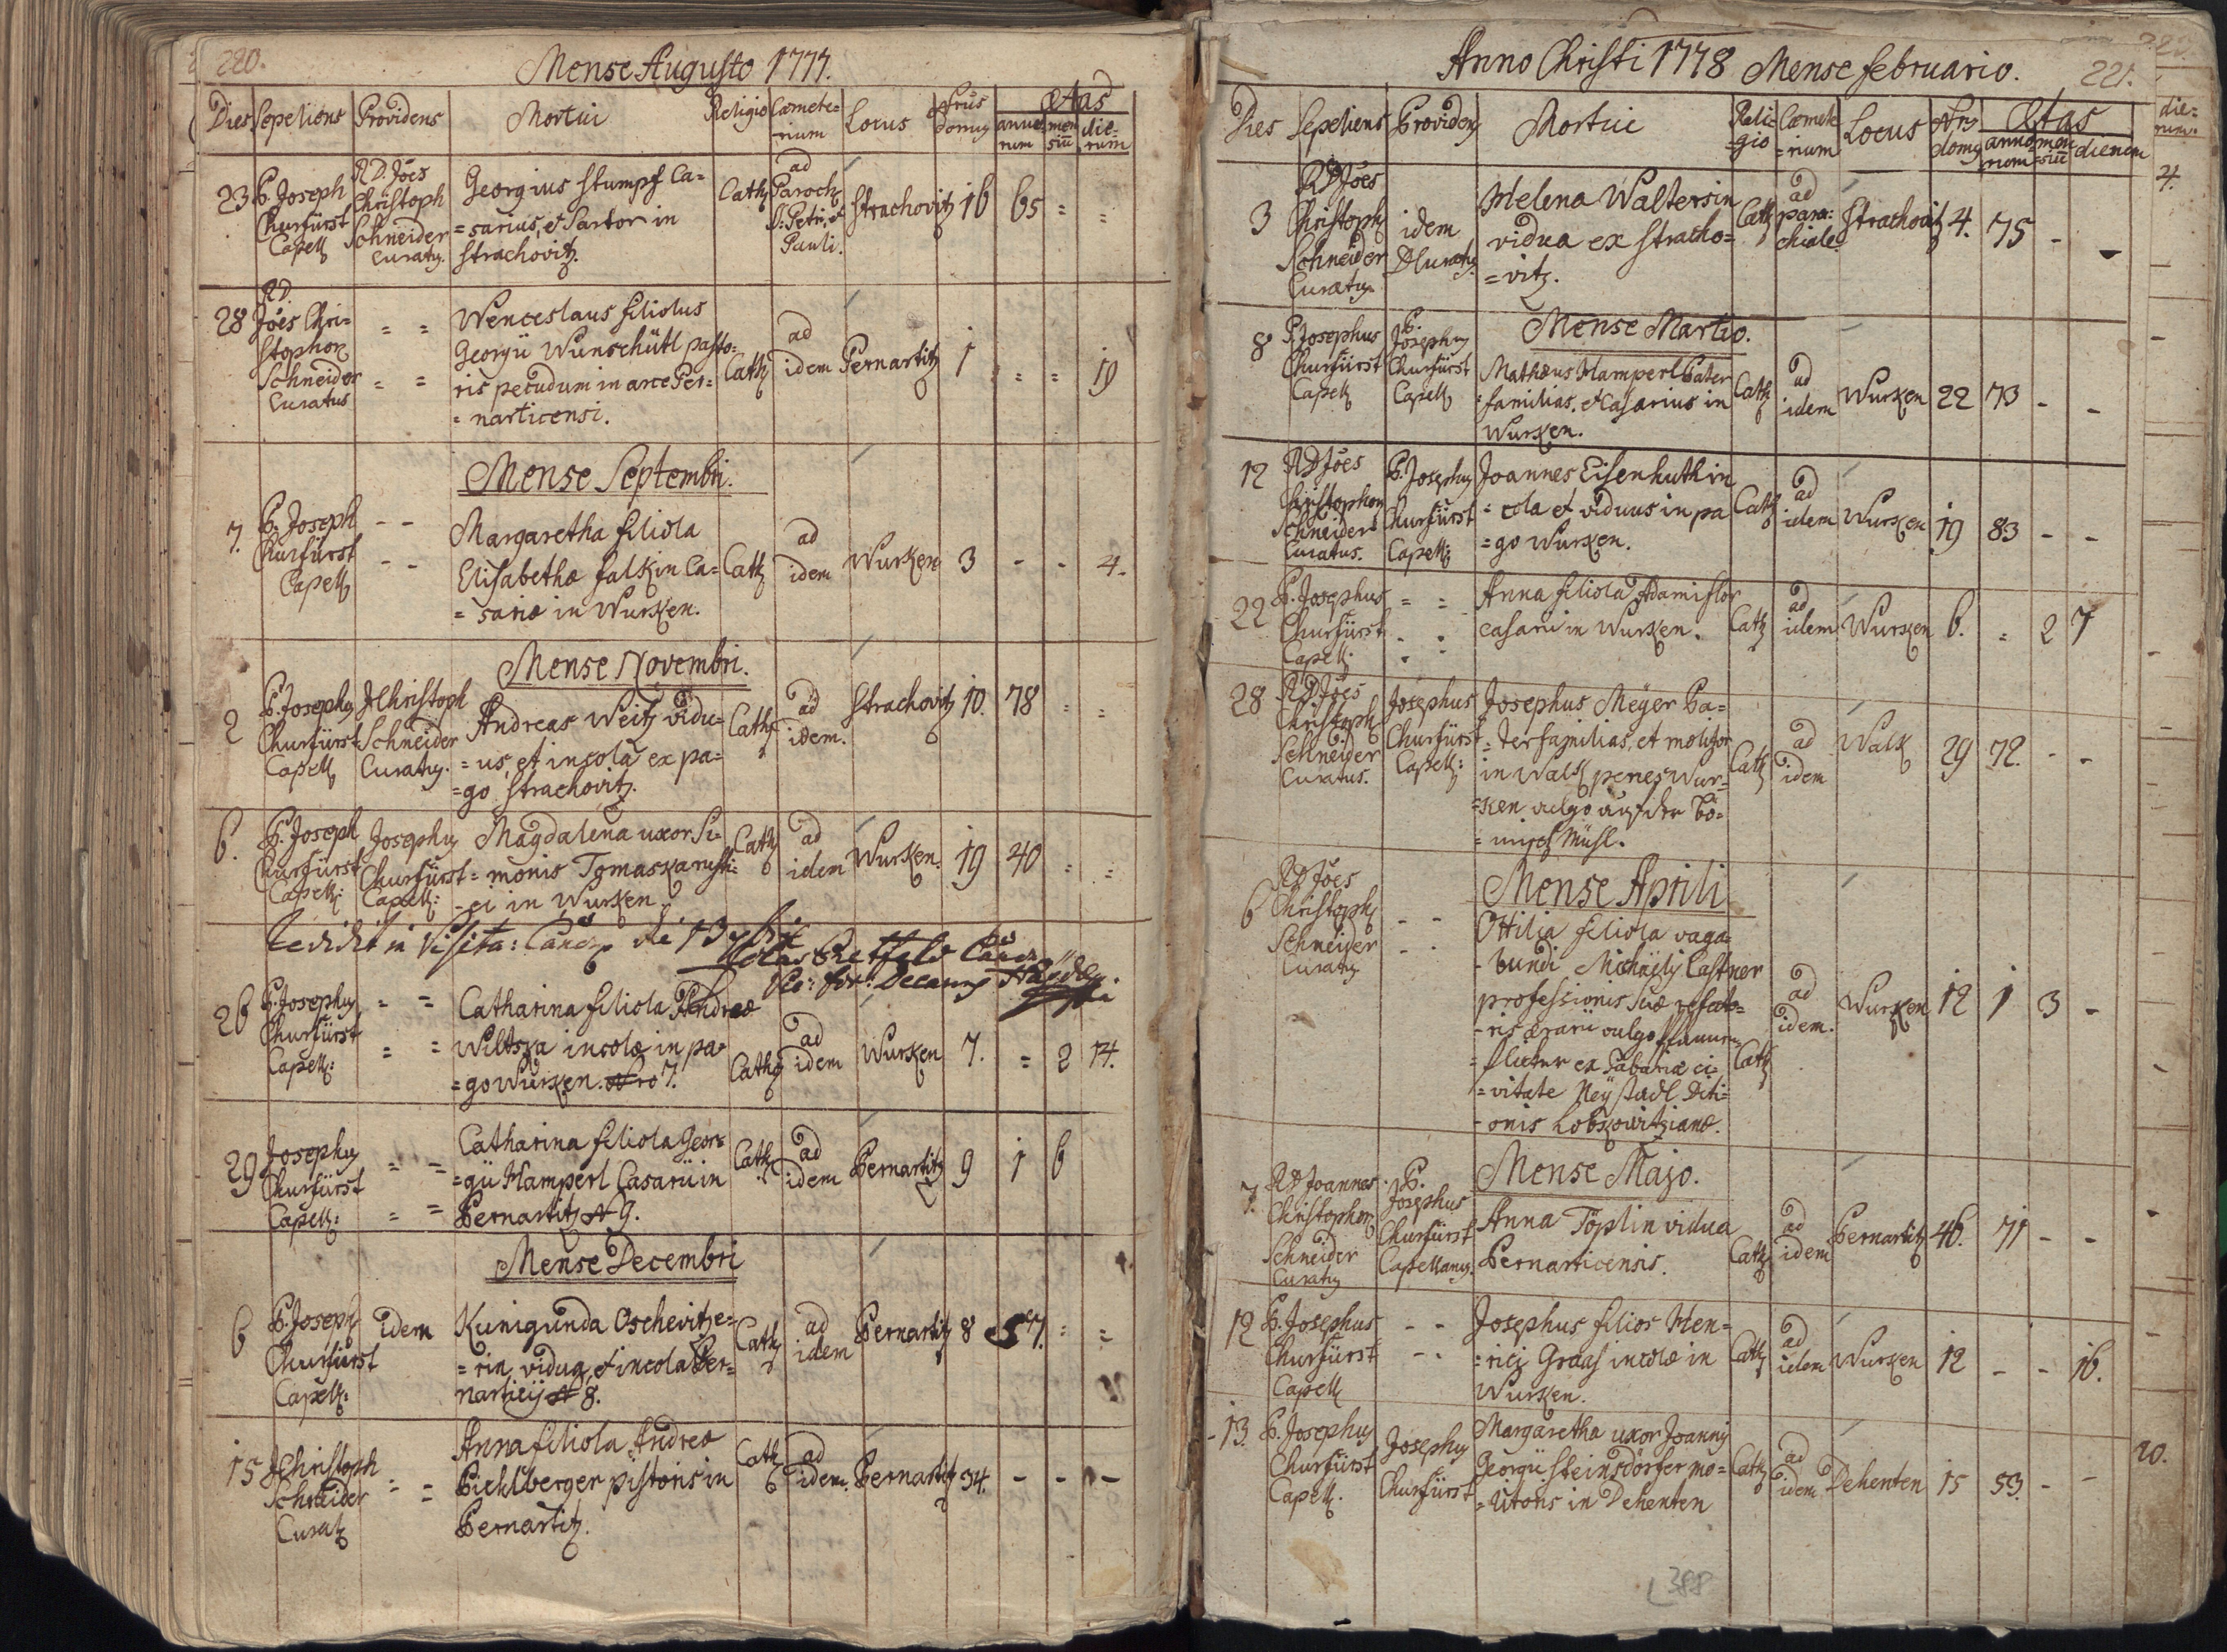 220.
Mense Augusto 1777.
Dies Sepeliens Providens Mortui Religio Cœmete= Locus Nrus Ætas
=rium domus anno= men die=
rum siū rum
23 P. Joseph Churfürst Capell
R D. Jões Christoph Schneider Curatus
Georgius Stumpf Ca=
=sarius, et Sartor in
Strachovitz.
Cath ad Paroch S: Petri et Pauli. Strachovitz 16 65 = =
28 RD Jões Chri=
stophor Schneider Curatus
= =
Wenceslaus filiolus
Georgii Wunschüttl pasto=
ris pecudum in arce Per=
=narticensi.
Cath ad idem Pernartitz 1 = = 19
Mense Septembri.
7. P. Joseph Churfürst Capell
- -
Margaretha filiola
Elisabethæ Falkin Ca=
=sariæ in Wurken.
Cath ad idem Wurken 3 - - 4.
Mense Novembri.
2 P. Josephus Churfürst Capell
Christoph Schneider Curatus.
Andreas Weitz vidu=
=us, et incola ex pa=
=go Strachovitz.
Cath ad idem. Strachovitz 10. 78 = =
6. P. Joseph Churfürst Capell:
Josephus Churfürst Capell:
Magdalena uxor Si=
=monis Tomaska rusti=
=ci in Wurken.
Cath ad idem Wurken. 19 40 = =
in Visita:
26 P. Josephus Churfürst Capell:
= =
Catharina filiola Andreæ
Wiltska incolæ in pa=
=go Wurken. Nro 7.
Cath ad idem Wurken 7. = 2 14.
29 Josephus Churfürst Capell:
= =
Catharina filiola Geor=
=gii Hamperl Casarii in
Pernartitz N 9.
Cath ad idem Pernartitz 9 1 6
Mense Decembri
6 P. Joseph Churfürst Capell:
idem
Kunigunda Oschevitze=
=rin, vidua, et incola Per=
narticij N 8.
Cath ad idem Pernartitz 8 57. = =
15 Christoph Schneider Curat
= =
Anna filiola Andreæ
Picklberger pistoris in
Pernartitz.
Cath ad idem. Pernartitz 34. - - -
Anno Christi 1778 Mense Februario. 221.
Dies Sepeliens Providens Mortui Reli= Cœmete Locus Nrs Ætas
=gio =rium domus anno= men dierum
rum =siū
3 RD Jões Christoph Schneider Curatus
idem
Helena Waltersin
vidua ex Stracho=
=vitz.
Cath ad paro= chiale Strachovitz 4. 75 - -
Mense Martio.
8 P. Josephus Churfürst Capell
P. Josephus Churfürst Capell
Mathæus Hamperl Pater
familias, et Casarius in
Wurken.
Cath ad idem Wurken 22 73 - -
12 RD Jões Christophor Schneider Curatus.
P. Josephus Churfürst Capell:
Joannes Eisenhuth in
=cola et viduus in pa
=go Wurken.
Cath ad idem Wurken 19 83 - -
22 P. Josephus Churfürst Capell:
= =
Anna filiola Adami Flor
casarii in Wurken.
Cath ad idem Wurken 6. = 2 7
28 RD Jões Christoph Schneider Curatus.
Josephus Churfürst Capell:
Josephus Meyer Pa=
=ter familias, et molitor
in Walk penes Wur=
=ken vulgo auf der Bö=
=misch Mühl.
Cath ad idem Walk 29 72. - -
Mense Aprili
6 RD Jões Christoph Schneider Curatus
- -
Ottilia filiola vaga=
=bundi Michaelis Castner
professionis suæ refecto=
=ris ærarii vulgo Pfannen
=flicker ex Bavariæ ci=
=vitate Neystadl Diti=
=onis Lobkowitzianæ.
Cath ad idem. Wurken 12 1 3 -
Mense Majo.
7. RD Joannes Christophor Schneider Curatus
P. Josephus Churfürst Capellanus.
Anna Töplin vidua
Pernarticensis.
Cath ad idem Pernartitz 46. 71 - -
12 P. Josephus Churfürst Capell
- -
Josephus filios Hen=
=rici Graas incolæ in
Wurken.
Cath ad idem Wurken 12 - - 16.
13. P. Josephus Churfürst Capell.
Josephus Churfürst
Margaretha uxor Joannis
Georgii Steinsdörfer mo=
=litoris in Dehenten
Cath ad idem Dehenten 15 53. - -
388
die=
rum.
4.
20.